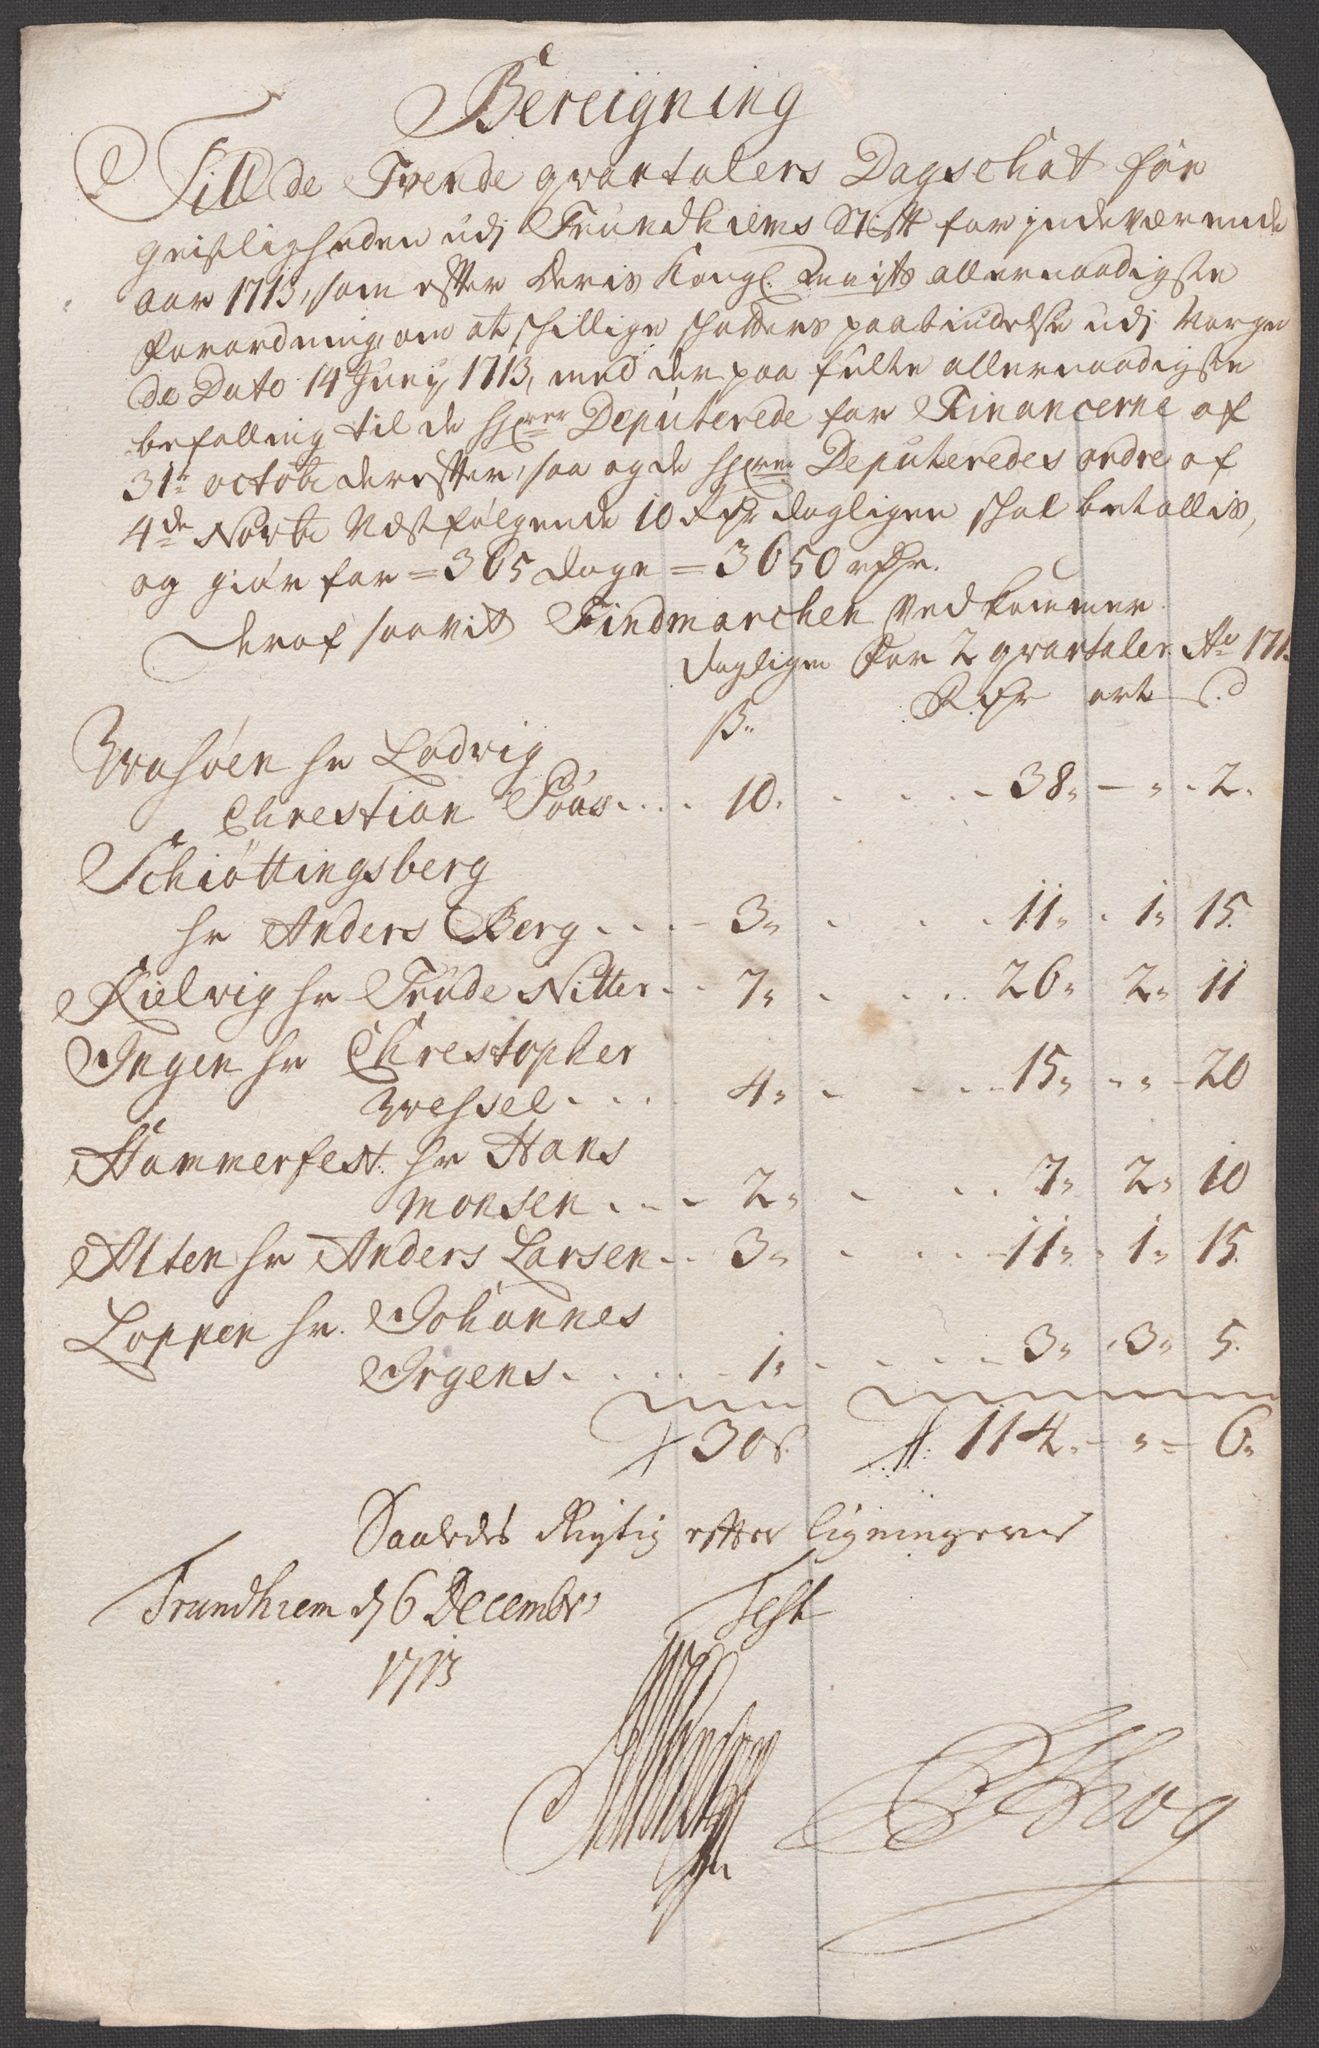 Bereigning
Till de Tvende qvartalers Dagschat for
geistligheden udj Trundhiems Stift for indeværende
aar 1713, som efter Deris Kongl. Mayts allernaadigste
forordning, om at schillige schatters paabiudelse udj Norge
de Dato 14 Junÿ 1713, med der paa fulte allernaadigste
befalling til de hherrer Deputerede for Financerne af
31te octobr derefter, saa og de hherrer Deputeredes ordre af
4de Novbr Næstfølgende 10 Rdr dagligen schal betallis,
og giør for = 365 dage = 3650 rdr.
Deraf saavit Findmarchen Vedkommer
dagligen For 2 qvartaler Ao 171
ß. Rdr ort ß
Wasøen hr Lodvig
Chrestian Pous .... 10. .... 38 " — " - 2.
Schiøttingsberg
hr Anders Berg .... 3 " ... 11 " . 1 " 15.
Kielvig hr Trude Nitter .. 7 " .... 26 " 2 " 11
Ingen hr Christopher
Wessel .... 4 " .... 15 " " - 20
Hammerfest hr Hans
Monsen .... 2 " ... 7 " 2 " 10
Alten hr Anders Larsen .. 3 " .... 11 " . 1 " 15.
Loppen hr. Johannes
Irgens ..... 1 " ..... 3 " . 3 " 5.
30 ß. 114. - " - 6 "
Saaledes Rigtig efter ligningerne
Trundhiem d 6 Decembr
1713
Test